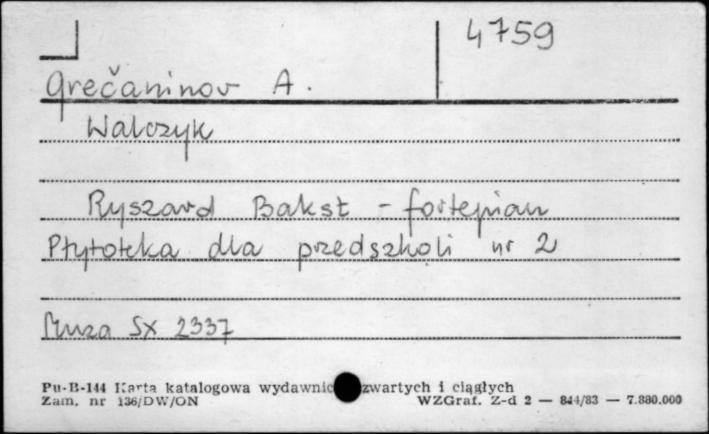 4759
Grečaninov A.
Walczyk
Ryszard Bakst - fortepian
Płytoteka dla przedszkoli nr 2
Muza SX 2337
Pu-B-144 Karta katalogowa wydawnic zwartych i ciągłych
Zam. nr 136/DW/ON WZGraf. Z-d 2 — 844/83 — 7.880.000